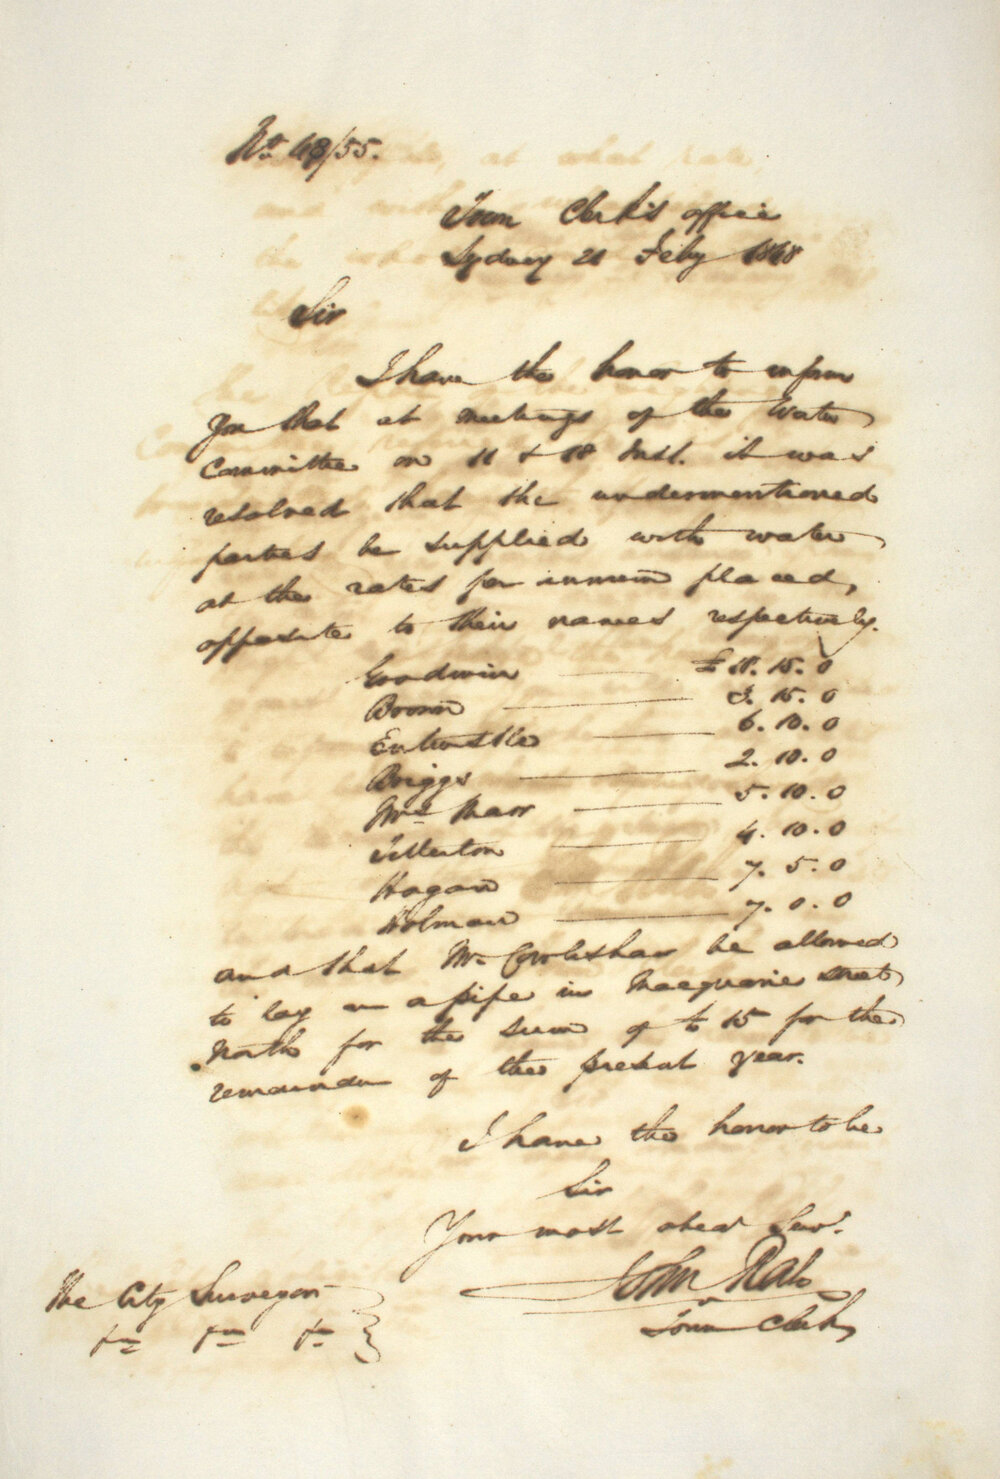 No. 48/55.
Town Clerk's office
Sydney 21 Feby 1848
Sir
I have the honor to inform
you that at meetings of the Water
Committee on 11 & 18 Inst. it was
resolved that the undermentioned
parties be supplied with water
at the rates per annum placed,
opposite to their names respectively.
Goodwin £ 15. 0
Brown 15. 0
Entwistle 6. 10. 0
Briggs 2. 10. 0
Mrs Marr 5. 10. 0
Titterton 4. 10. 0
Hagan 7. 5. 0
Holman 7. 0. 0
and that Mr Cowlishaw be allowed
to lay on a pipe in Macquarie Street
North for the sum of 15 for the
remainder of the present year.
I have the honor to be
Sir
Your most obedt Servt.
John Rae
Town Clerk
The City Surveyor